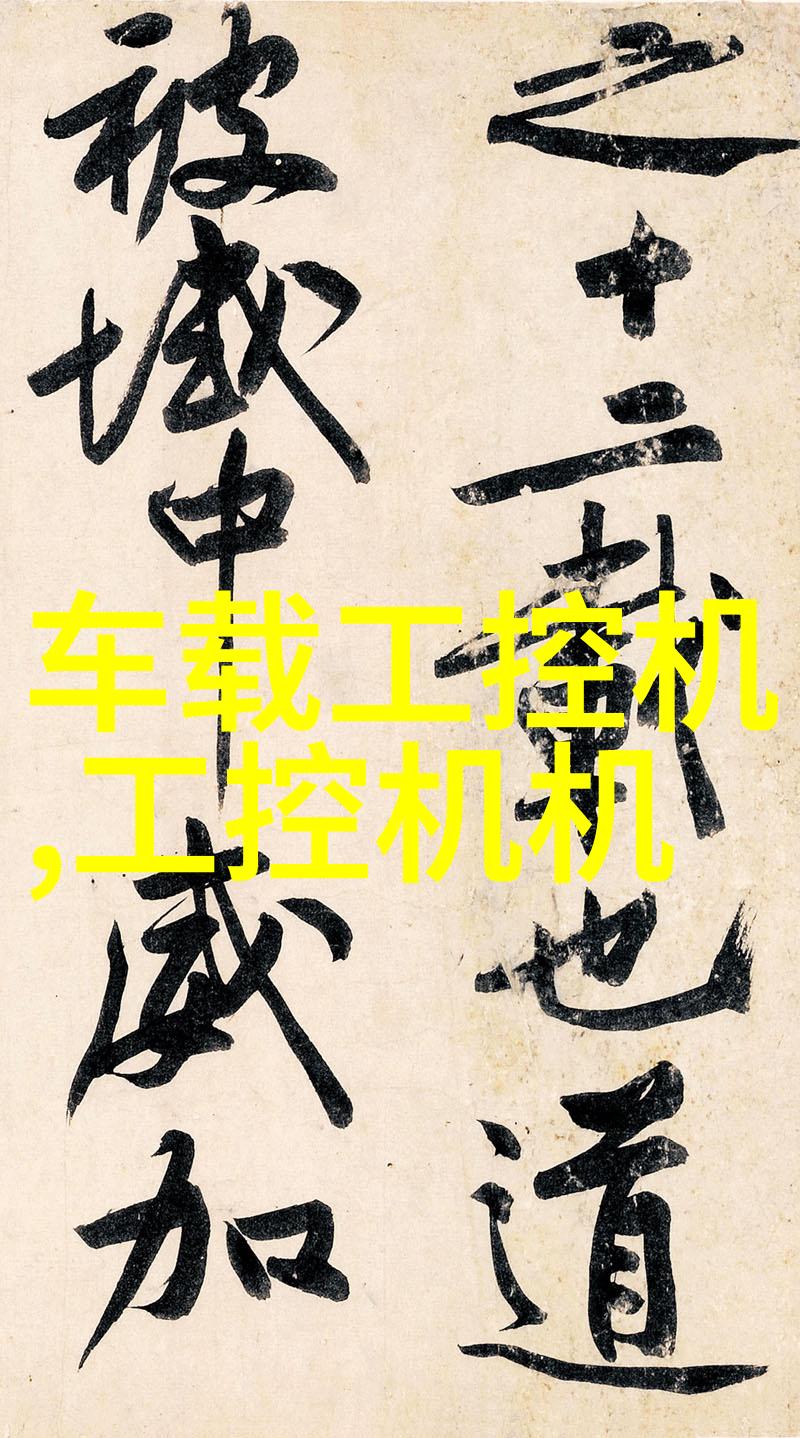 之十二載也道
被域中威加
车载工控机
,工控机机